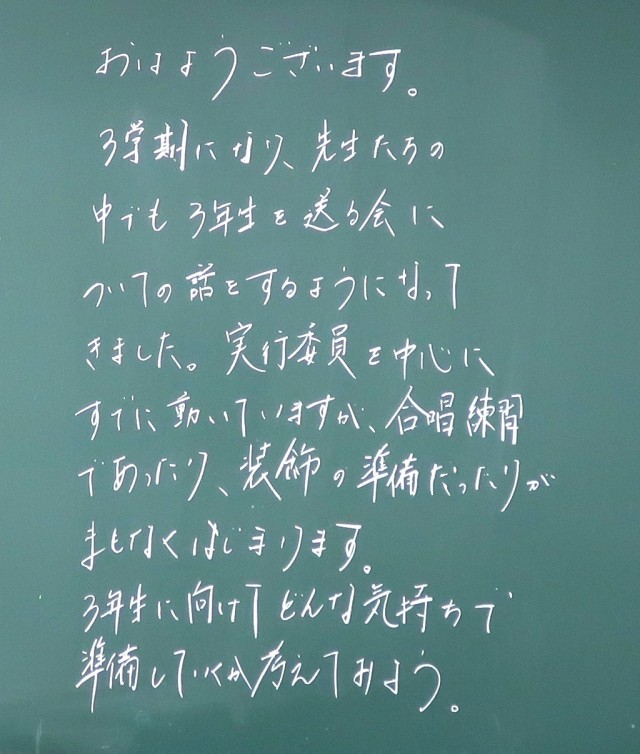 おはようございます。
3学期になり、先生たちの
中でも3年生を送る会に
ついての話をするようになって
きました。実行委員を中心に
すでに動いていますが、合唱練習
であったり、装飾の準備だったりが
まもなくはじまります。
3年生に向けてどんな気持ちで
準備していくか考えておこう。